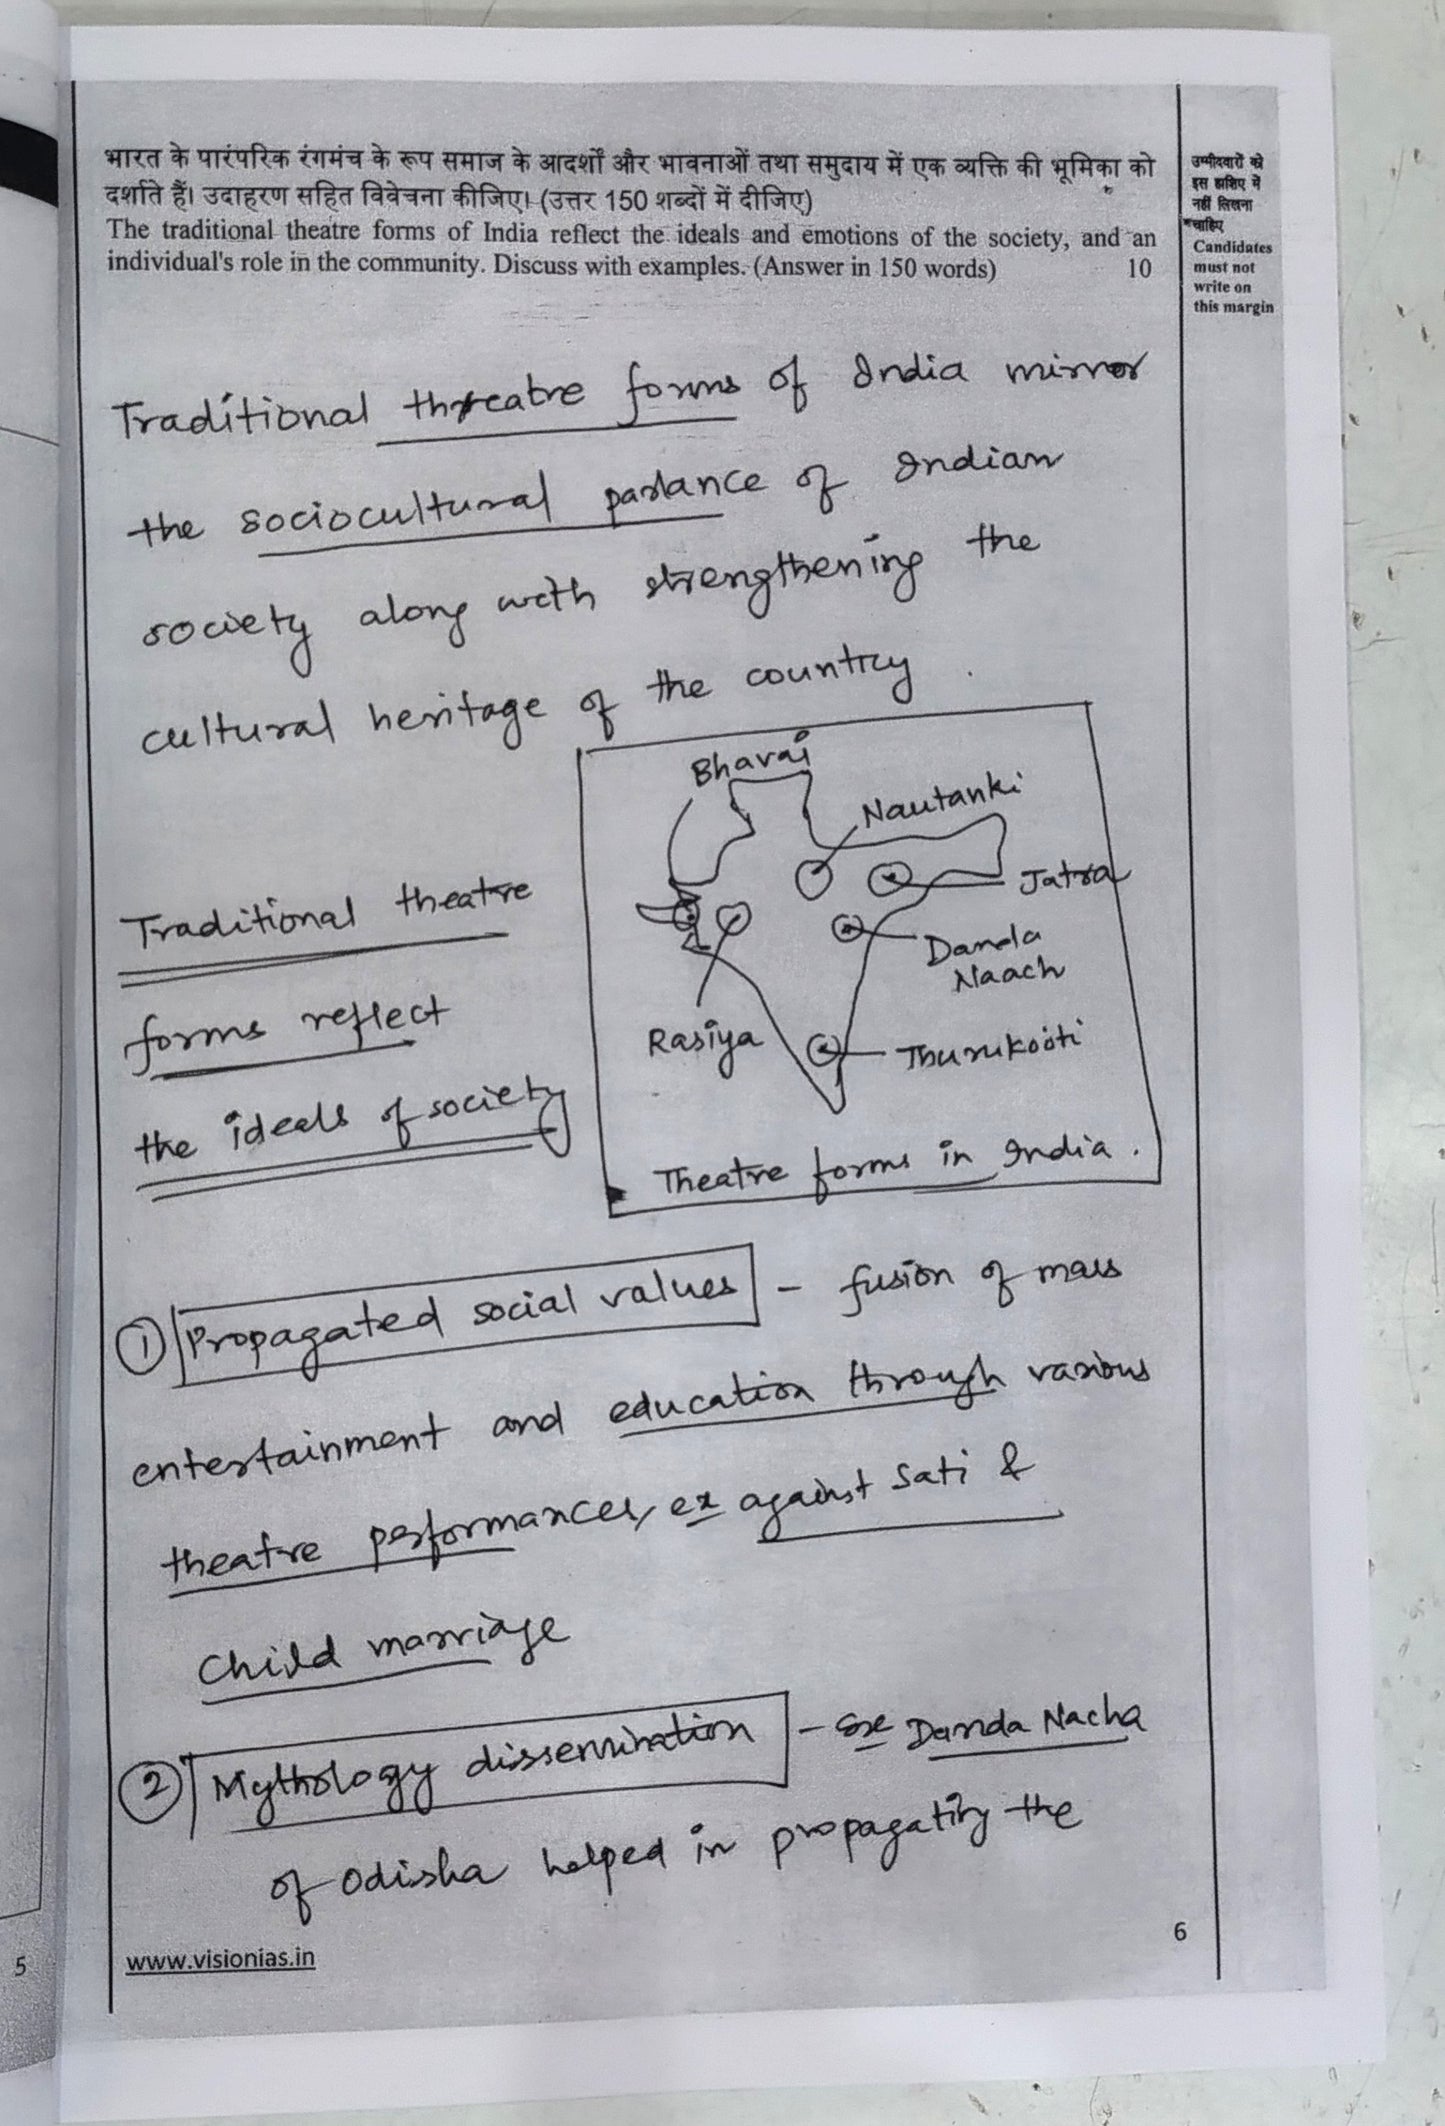 भारत के पारंपरिक रंगमंच के रूप समाज के आदर्शों और भावनाओं तथा समुदाय में एक व्यक्ति की भूमिका को
दर्शाते हैं। उदाहरण सहित विवेचना कीजिए। (उत्तर 150 शब्दों में दीजिए)
The traditional theatre forms of India reflect the ideals and emotions of the society, and an
individual's role in the community. Discuss with examples. (Answer in 150 words) 10
उम्मीदवारों को
इस हाशिए में
नहीं लिखना
चाहिए
Candidates
must not
write on
this margin
Traditional theatre forms of India mirror
the sociocultural parlance of Indian
society along with strengthening the
cultural heritage of the country.
Bhavai
Nautanki
Jatra
Danda
Naach
Rasiya
Thurukooti
Theatre forms in India.
Traditional theatre
forms reflect
the ideals of society
① Propagated social values - fusion of mass
entertainment and education through various
theatre performances, ex against Sati &
Child marriage
② Mythology dissemination - ex Danda Nacha
of Odisha helped in propagating the
5
www.visionias.in
6